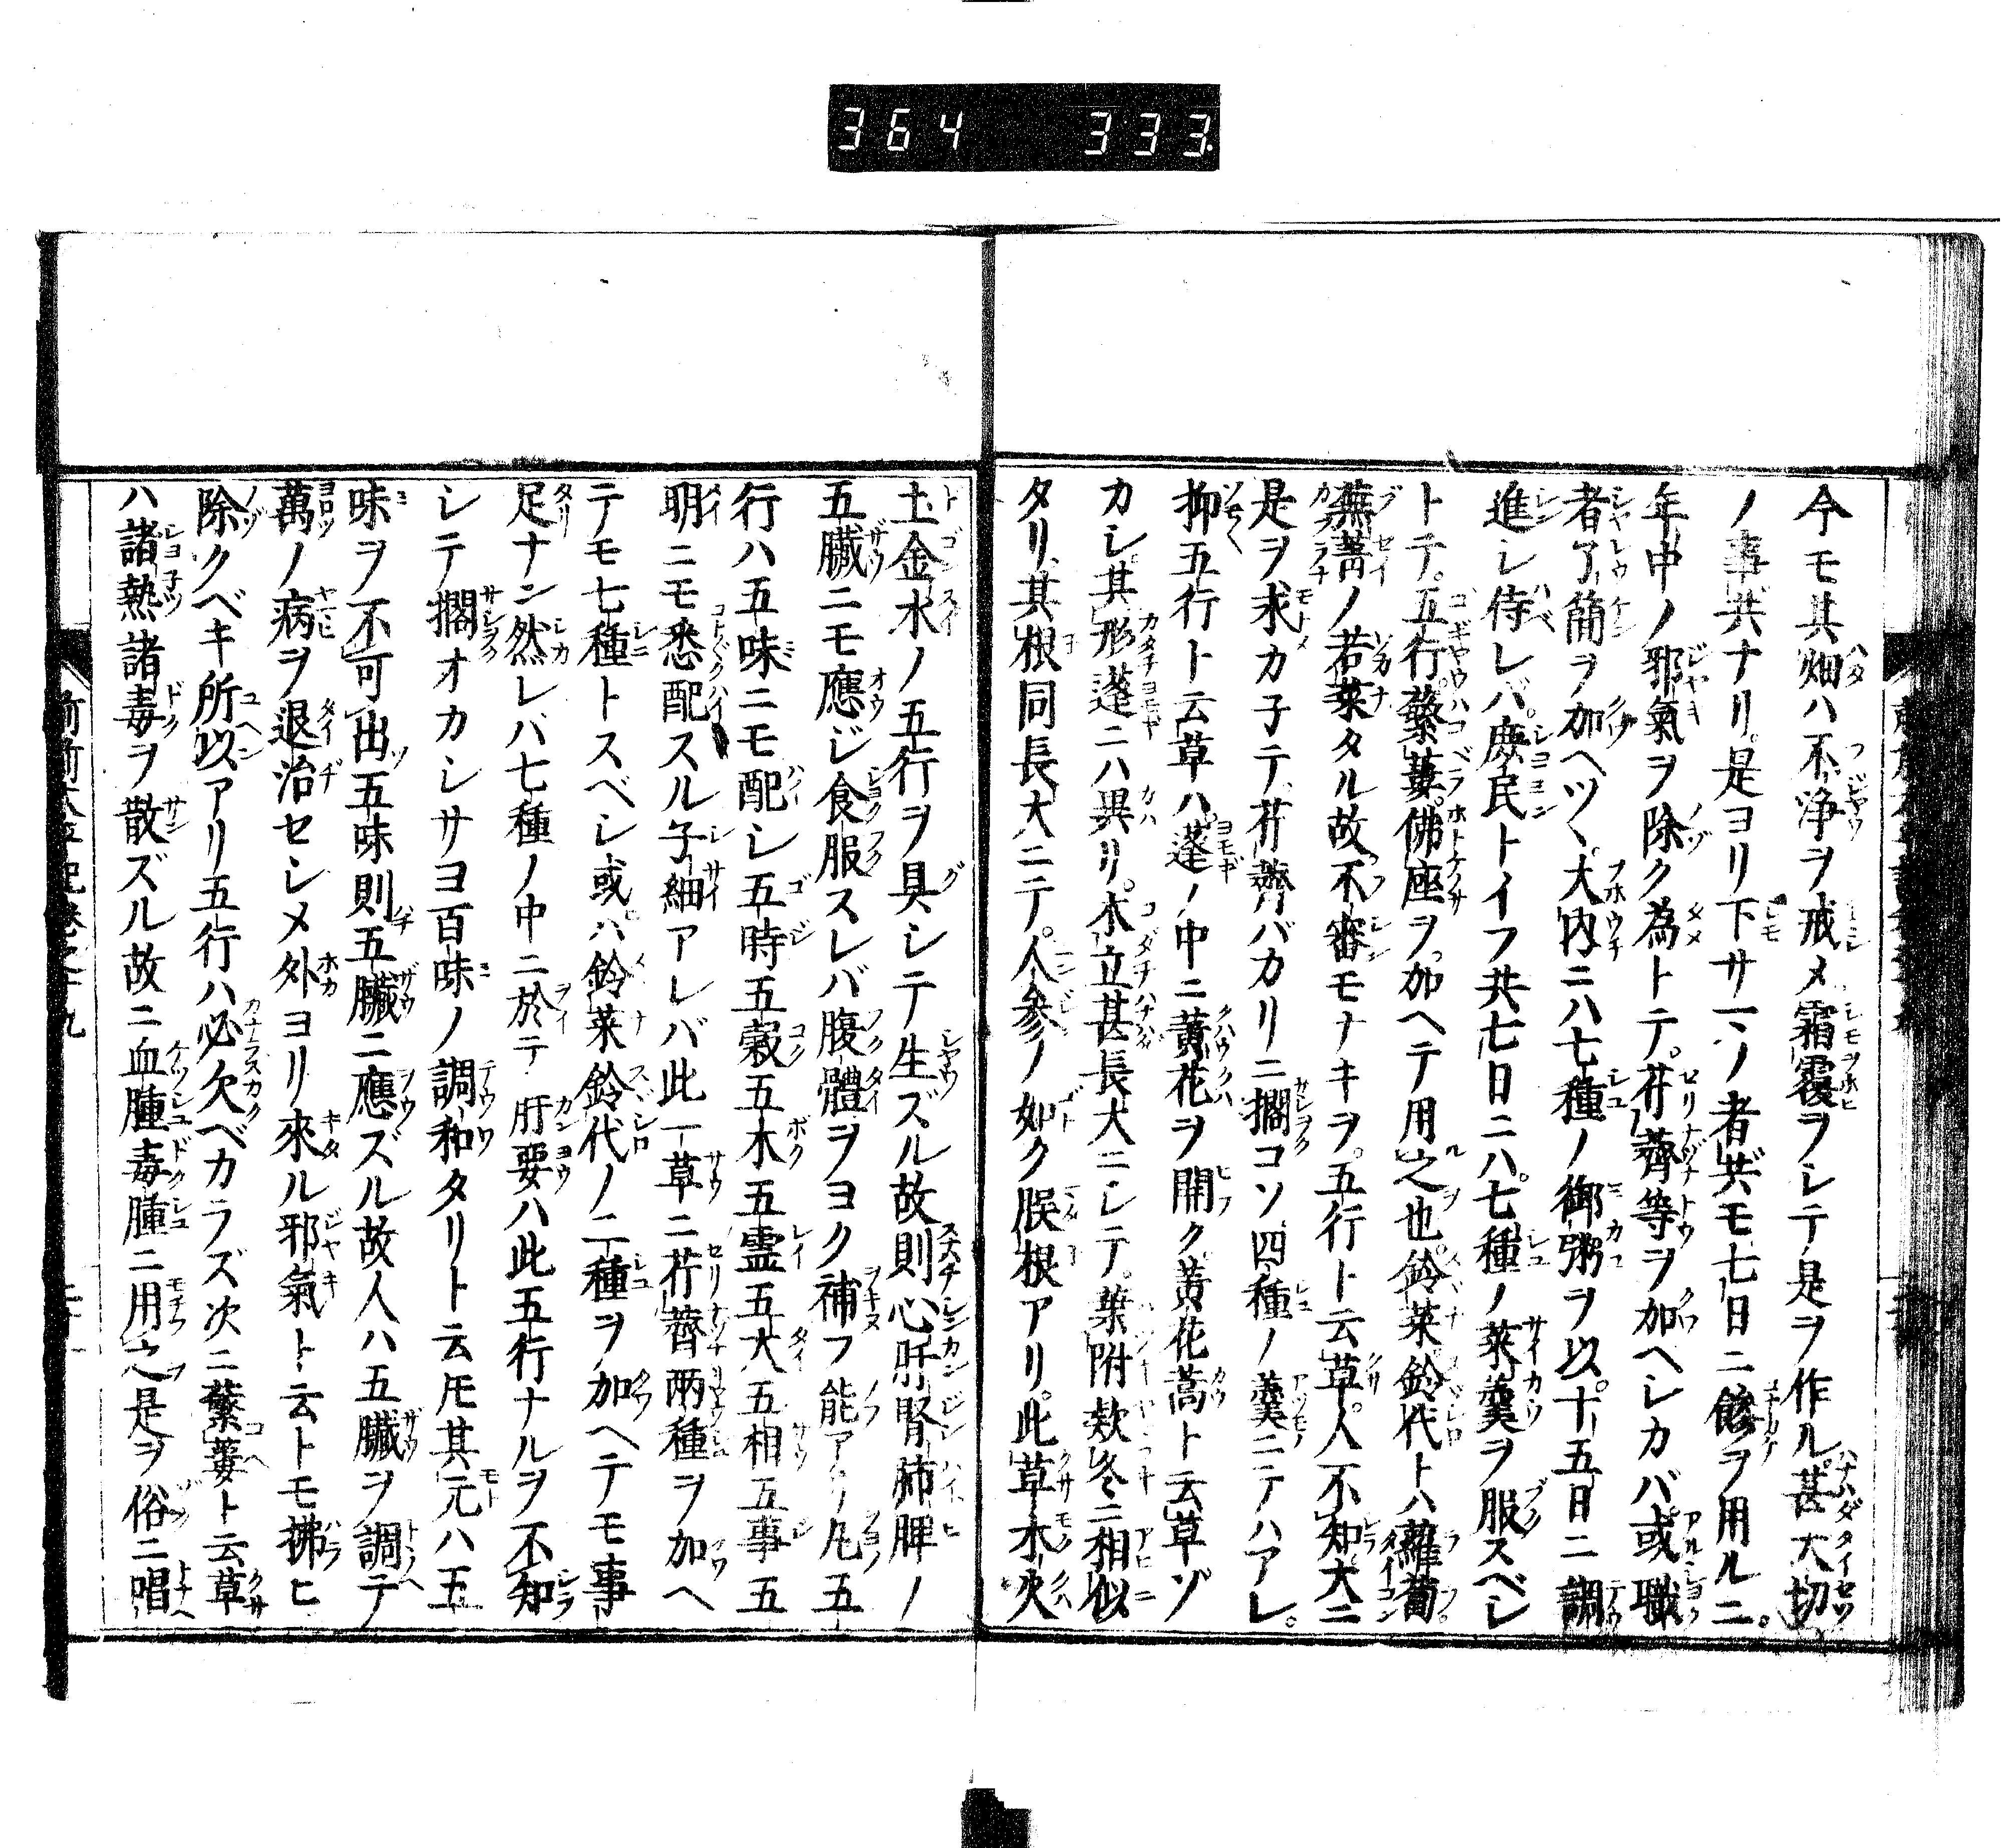 364 333
今モ其畑ハ不浄ヲ戒メ霜覆ヲシテ是ヲ作ル甚大切
ノ事共ナリ是ヨリ下サマノ者共モ七日ニ餘ヲ用ルニ
年中ノ邪氣ヲ除ク為トテ芹薺等ヲ加ヘシカバ或職
者了簡ヲ加ヘツヽ大内ニハ七種ノ御粥ヲ以十五日ニ調
進シ侍レバ庶民トイフ共七日ニハ七種ノ菜羹ヲ服スベシ
トテ五行蘩蔞佛座ヲ加ヘテ用之也鈴菜鈴代トハ蘿蔔
蕪菁ノ若菜タル故不審モナキヲ五行ト云草人不知大ニ
是ヲ求カ子テ芹薺バカリニ擱コソ四種ノ羹ニテハアレ
抑五行ト云草ハ蓬ノ中ニ黄花ヲ開ク黄花蒿ト云草ゾ
カシ其形蓬ニハ異リ木立甚長大ニシテ葉附欵冬ニ相似
タリ其根同長大ニテ人参ノ如ク股根アリ此草木火
土金水ノ五行ヲ具シテ生ズル故則心肝腎肺脾ノ
五臓ニモ應ジ食服スレバ腹體ヲヨク補フ能アリ凡五
行ハ五味ニモ配シ五時五穀五木五霊五大五相五事五
明ニモ悉配スル子細アレバ此一草ニ芹薺兩種ヲ加ヘ
テモ七種トスベシ或ハ鈴菜鈴代ノ二種ヲ加ヘテモ事
足ナン然レバ七種ノ中ニ於テ肝要ハ此五行ナルヲ不知
シテ擱オカシサヨ百味ノ調和タリト云圧其元ハ五
味ヲ不可出五味則五臓ニ應ズル故人ハ五臓ヲ調テ
萬ノ病ヲ退治セシメ外ヨリ來ル邪氣ト云トモ拂ヒ
除クベキ所以アリ五行ハ必欠ベカラズ次ニ蘩蔞ト云草
ハ諸熱諸毒ヲ散ズル故ニ血腫毒腫ニ用之是ヲ俗ニ唱